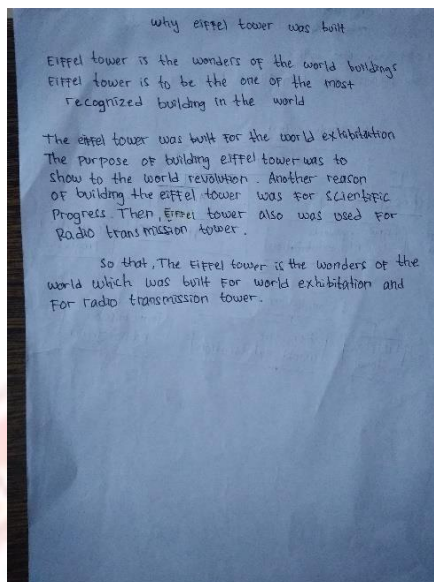 why eiffel tower was built
Eiffel tower is the wonders of the world buildings
Eiffel tower is to be the one of the most
recognized building in the world
The eiffel tower was built for the world exhibitation
The purpose of building eiffel tower was to
show to the world revolution. Another reason
of building the eiffel tower was for scientific
Progress. Then, Eiffel tower also was used for
Radio transmission tower.
So that, The Eiffel tower is the wonders of the
world which was built for world exhibitation and
for radio transmission tower.